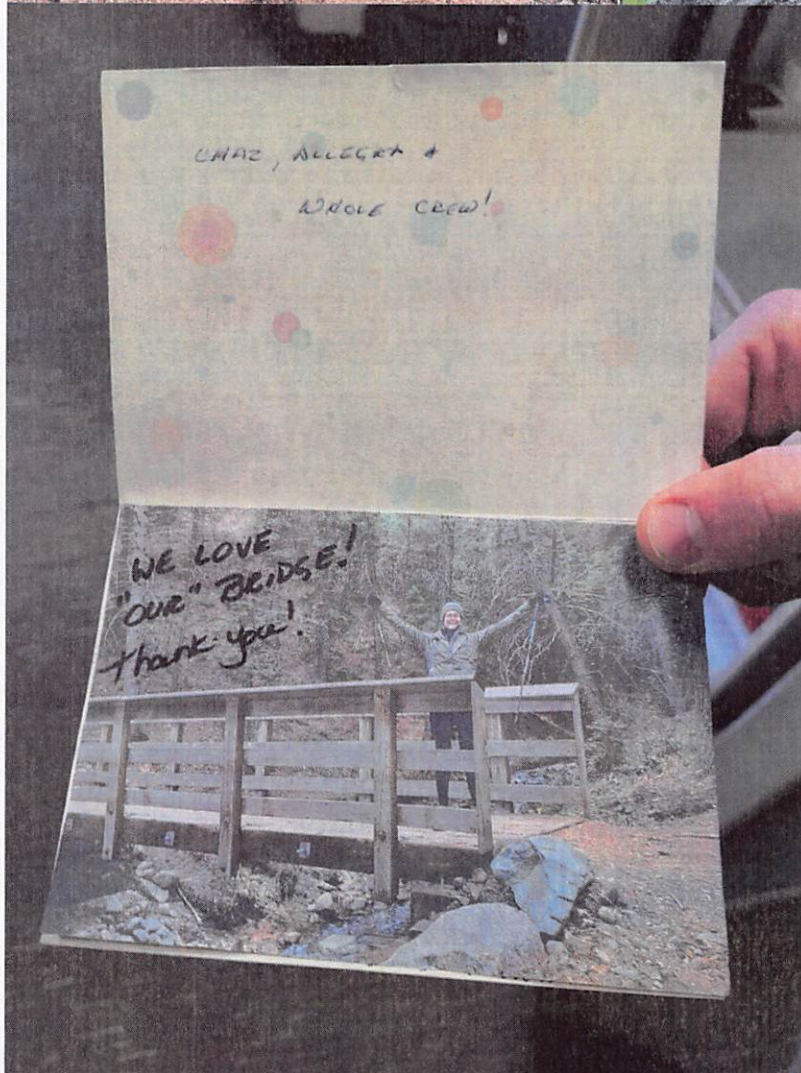 CHAZ, ALLEGRA +
WHOLE CREW!
"WE LOVE
"OUR" BRIDGE!
thank you!